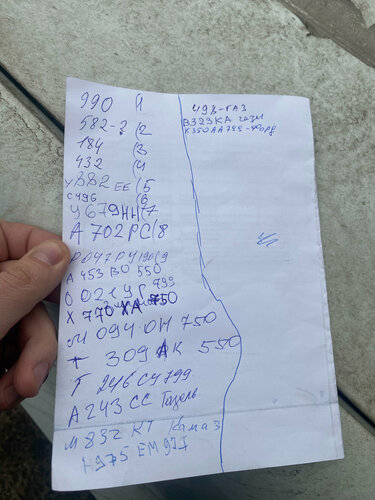 990 (1
582-3 (2
184 (3
432 (4
У882 ЕЕ (5
С496 (6
У679НН (7
А 702РС (8
Р047РУ190 (9
А 453 ВО 550
О 021УР 799
Х 770 ХА 750
М 094 ОН 750
Т 309 АК 550
Т 246 СУ 799
А 243 СС Газель
М 832 КТ Камаз
Н975 ЕМ 977
498-ГАЗ
В329КА газл
Х350АА799-Форд